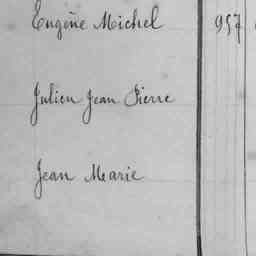 Eugène Michel 957
Julien Jean Pierre
Jean Marie